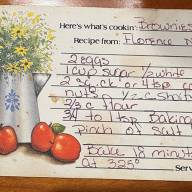 Here's what's cookin: Brownies
Recipe from: Florence
2 eggs
1 cup sugar 1/2 white
2 sq. choc or 4 tsp co
nuts - 1/2 c. short
2/3 c flour
3/4 to 1 tsp Baking
pinch of salt
Bake 18 minut
at 325°
Serv